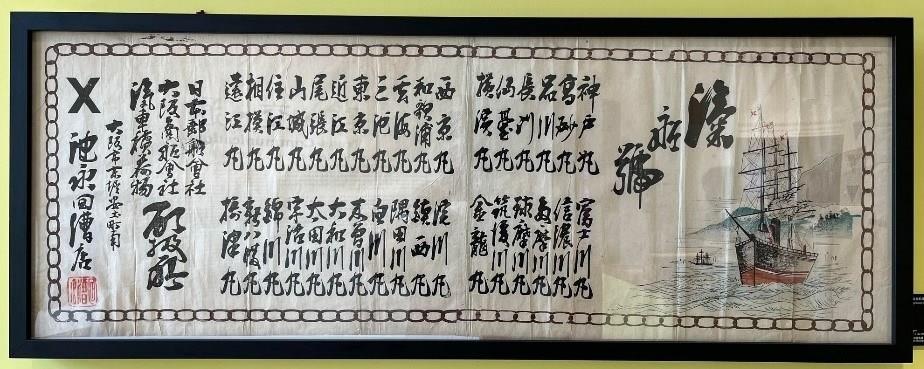 滊舩號
神戸丸
高砂丸
川丸
長門丸
仙臺丸
横濱丸
富士川丸
信濃川丸
摩川丸
球摩川丸
筑後川丸
金龍丸
西京丸
和歌浦丸
海丸
三池丸
東京丸
近江丸
尾張丸
山城丸
住江丸
相模丸
遠江丸
淀川丸
鎮西丸
隅田川丸
白川丸
木曽川丸
大和川丸
太田川丸
宇治川丸
錦川丸
摂津丸
日本郵船會社
大阪商舩會社
滊車積荷物
取扱所
大阪市東堀安土町角
池永回漕店